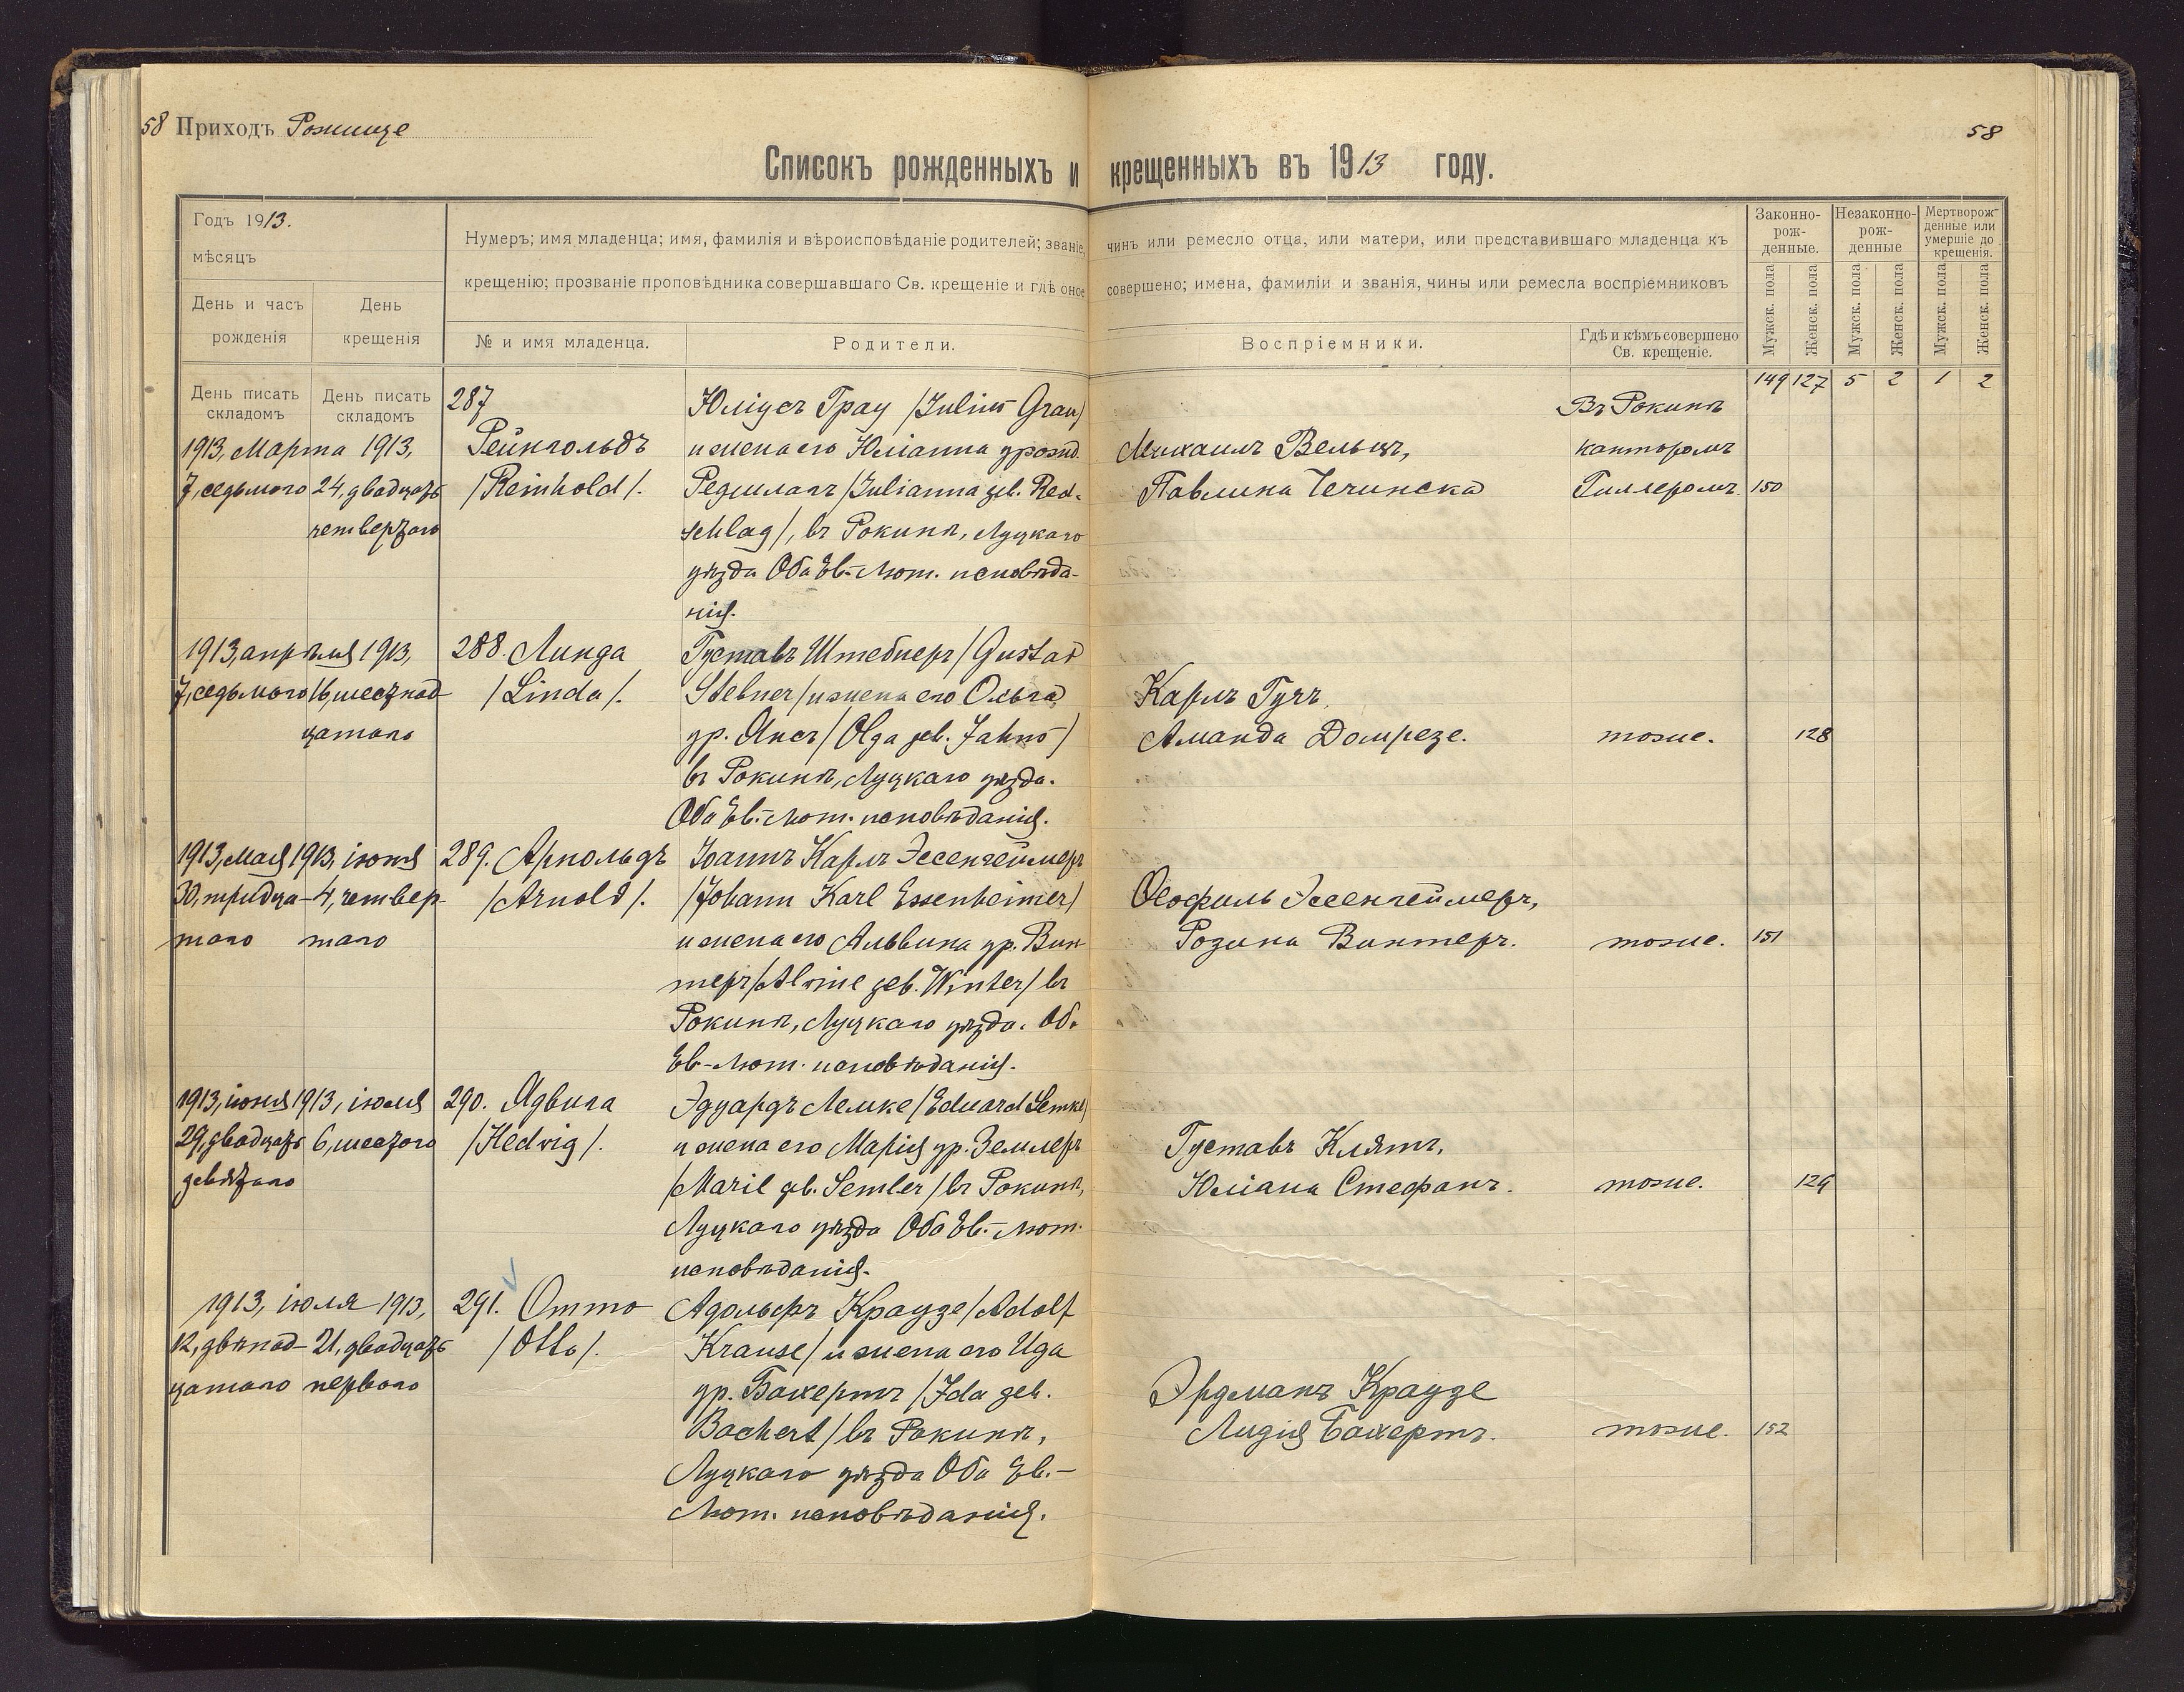 58 Приходъ Рожище
58
Списокъ рожденныхъ и крещенныхъ въ 1913 году.
Годъ 1913.
мѣсяцъ
День и часъ рожденія
День крещенія
Нумеръ; имя младенца; имя, фамилія и вѣроисповѣданіе родителей; званіе, чинъ или ремесло отца, или матери, или представившаго младенца къ
крещенію; прозваніе проповѣдника совершавшаго Св. крещеніе и гдѣ оное совершено; имена, фамиліи и званія, чины или ремесла воспріемниковъ
№ и имя младенца.
Родители.
Воспріемники.
Гдѣ и кѣмъ совершено
Св. крещеніе.
Законно-
рож-
денные.
Незаконно-
рож-
денные
Мертворож-
денные или
умершіе до
крещенія.
Мужск. пола
Женск. пола
Мужск. пола
Женск. пола
Мужск. пола
Женск. пола
149 127 5 2 1 2
День писать
складомъ
День писать
складомъ
1913, Марта 1913,
7, седьмого 24, двадцать
четвертого
287
Рейнгольдъ
/Reinhold/.
Юліусъ Грау /Julius Grau/
и жена его Юліанна урожд.
Редшлагъ /Julianna geb. Red-
schlag/, въ Рокинѣ, Луцкаго
уѣзда Оба Ев.-Лют. исповѣда-
нія.
Михаилъ Вельцъ,
Павлина Чечинска
Въ Рокинѣ
канторомъ
Гиллеромъ
150
1913, апрѣля 1913,
7, седьмого 16, шестнад-
цатаго
288. Линда
/Linda/.
Густавъ Штебнеръ /Gustav
Stebner/ и жена его Ольга
ур. Янсъ /Olga geb. Jahns/
въ Рокинѣ, Луцкаго уѣзда.
Оба Ев.-Лют. исповѣданія.
Карлъ Гучъ,
Аманда Домрезе.
тоже.
128
1913, мая 1913, іюня
30, тридца- 4, четвер-
таго таго
289. Арнольдъ
/Arnold/.
Іоаннъ Карлъ Эссенгеймеръ
/Johann Karl Essenheimer/
и жена его Альвина ур. Вин-
теръ /Alvine geb. Winter/ въ
Рокинѣ, Луцкаго уѣзда. Об.
Ев-Лют. исповѣданія.
Ѳеофиль Эссенгеймеръ,
Розина Винтеръ.
тоже.
151
1913, іюня 1913, іюля
29, двадцать 6, шестого
девятаго
290. Ядвига
/Hedwig/.
Эдуардъ Лемке /Eduard Lemke/
и жена его Марія ур. Земмлеръ
/Marie geb. Semler/ въ Рокинѣ,
Луцкаго уѣзда Оба Ев.-Лют.
исповѣданія.
Густавъ Клятъ,
Юліана Стефанъ.
тоже.
129
1913, іюля 1913,
12, двѣнад- 21, двадцать
цатаго перваго
291. Отто
/Otto/.
Адольфъ Краузе /Adolf
Krause/ и жена его Ида
ур. Бахертъ /Ida geb.
Bachert/ въ Рокинѣ,
Луцкаго уѣзда Оба Ев.-
Лют. исповѣданія.
Эрдманъ Краузе
Лидія Бахертъ.
тоже.
152